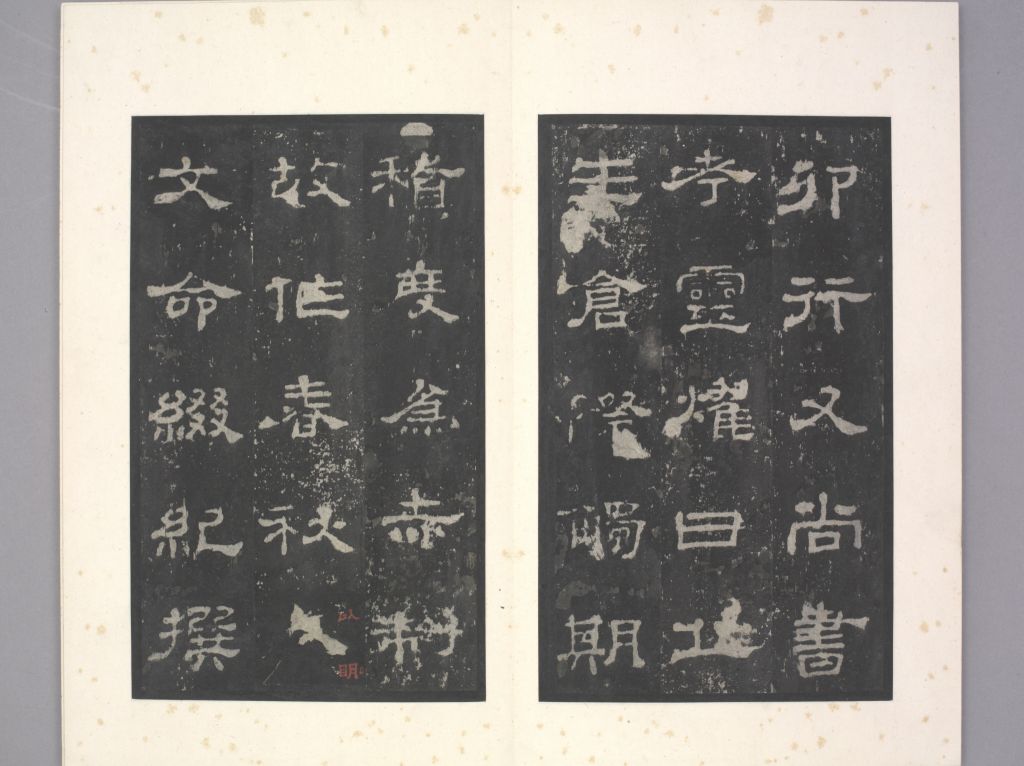 卯行又尚書
考靈燿曰丘
生倉際觸期
稽度為赤制
故作春秋
以明
文命綴紀撰